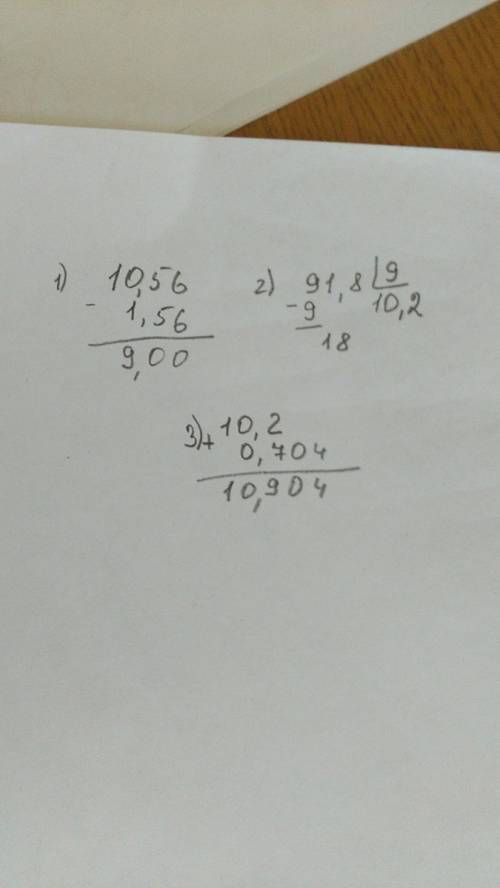 1) 10,56
- 1,56
9,00
2) 91,8 | 9
-9 10,2
18
3) + 10,2
0,704
10,904